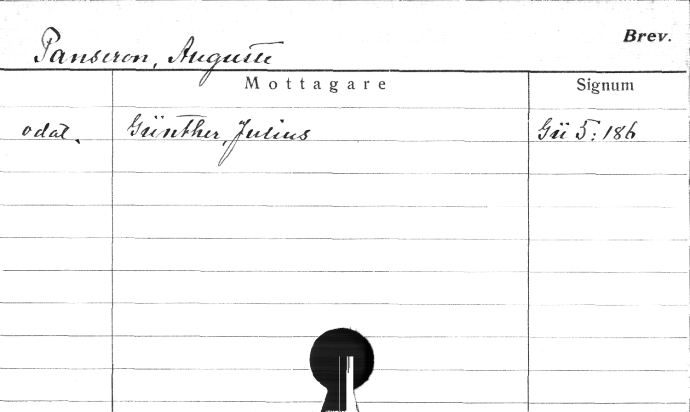 Brev.
Panseron, Auguste
Mottagare Signum
odat. Günther, Julius Gü 5:186